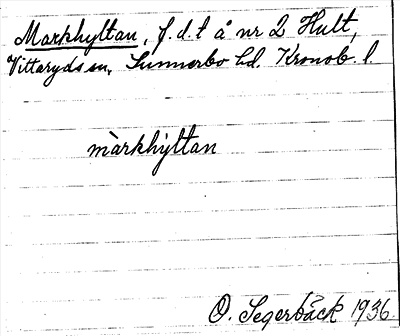 Markhyltan, f.d.t å nr 2 Hult,
Vittaryds sn, Sunnerbo hd. Kronob. l.
màrkhýltan
O. Segerbäck 1936.